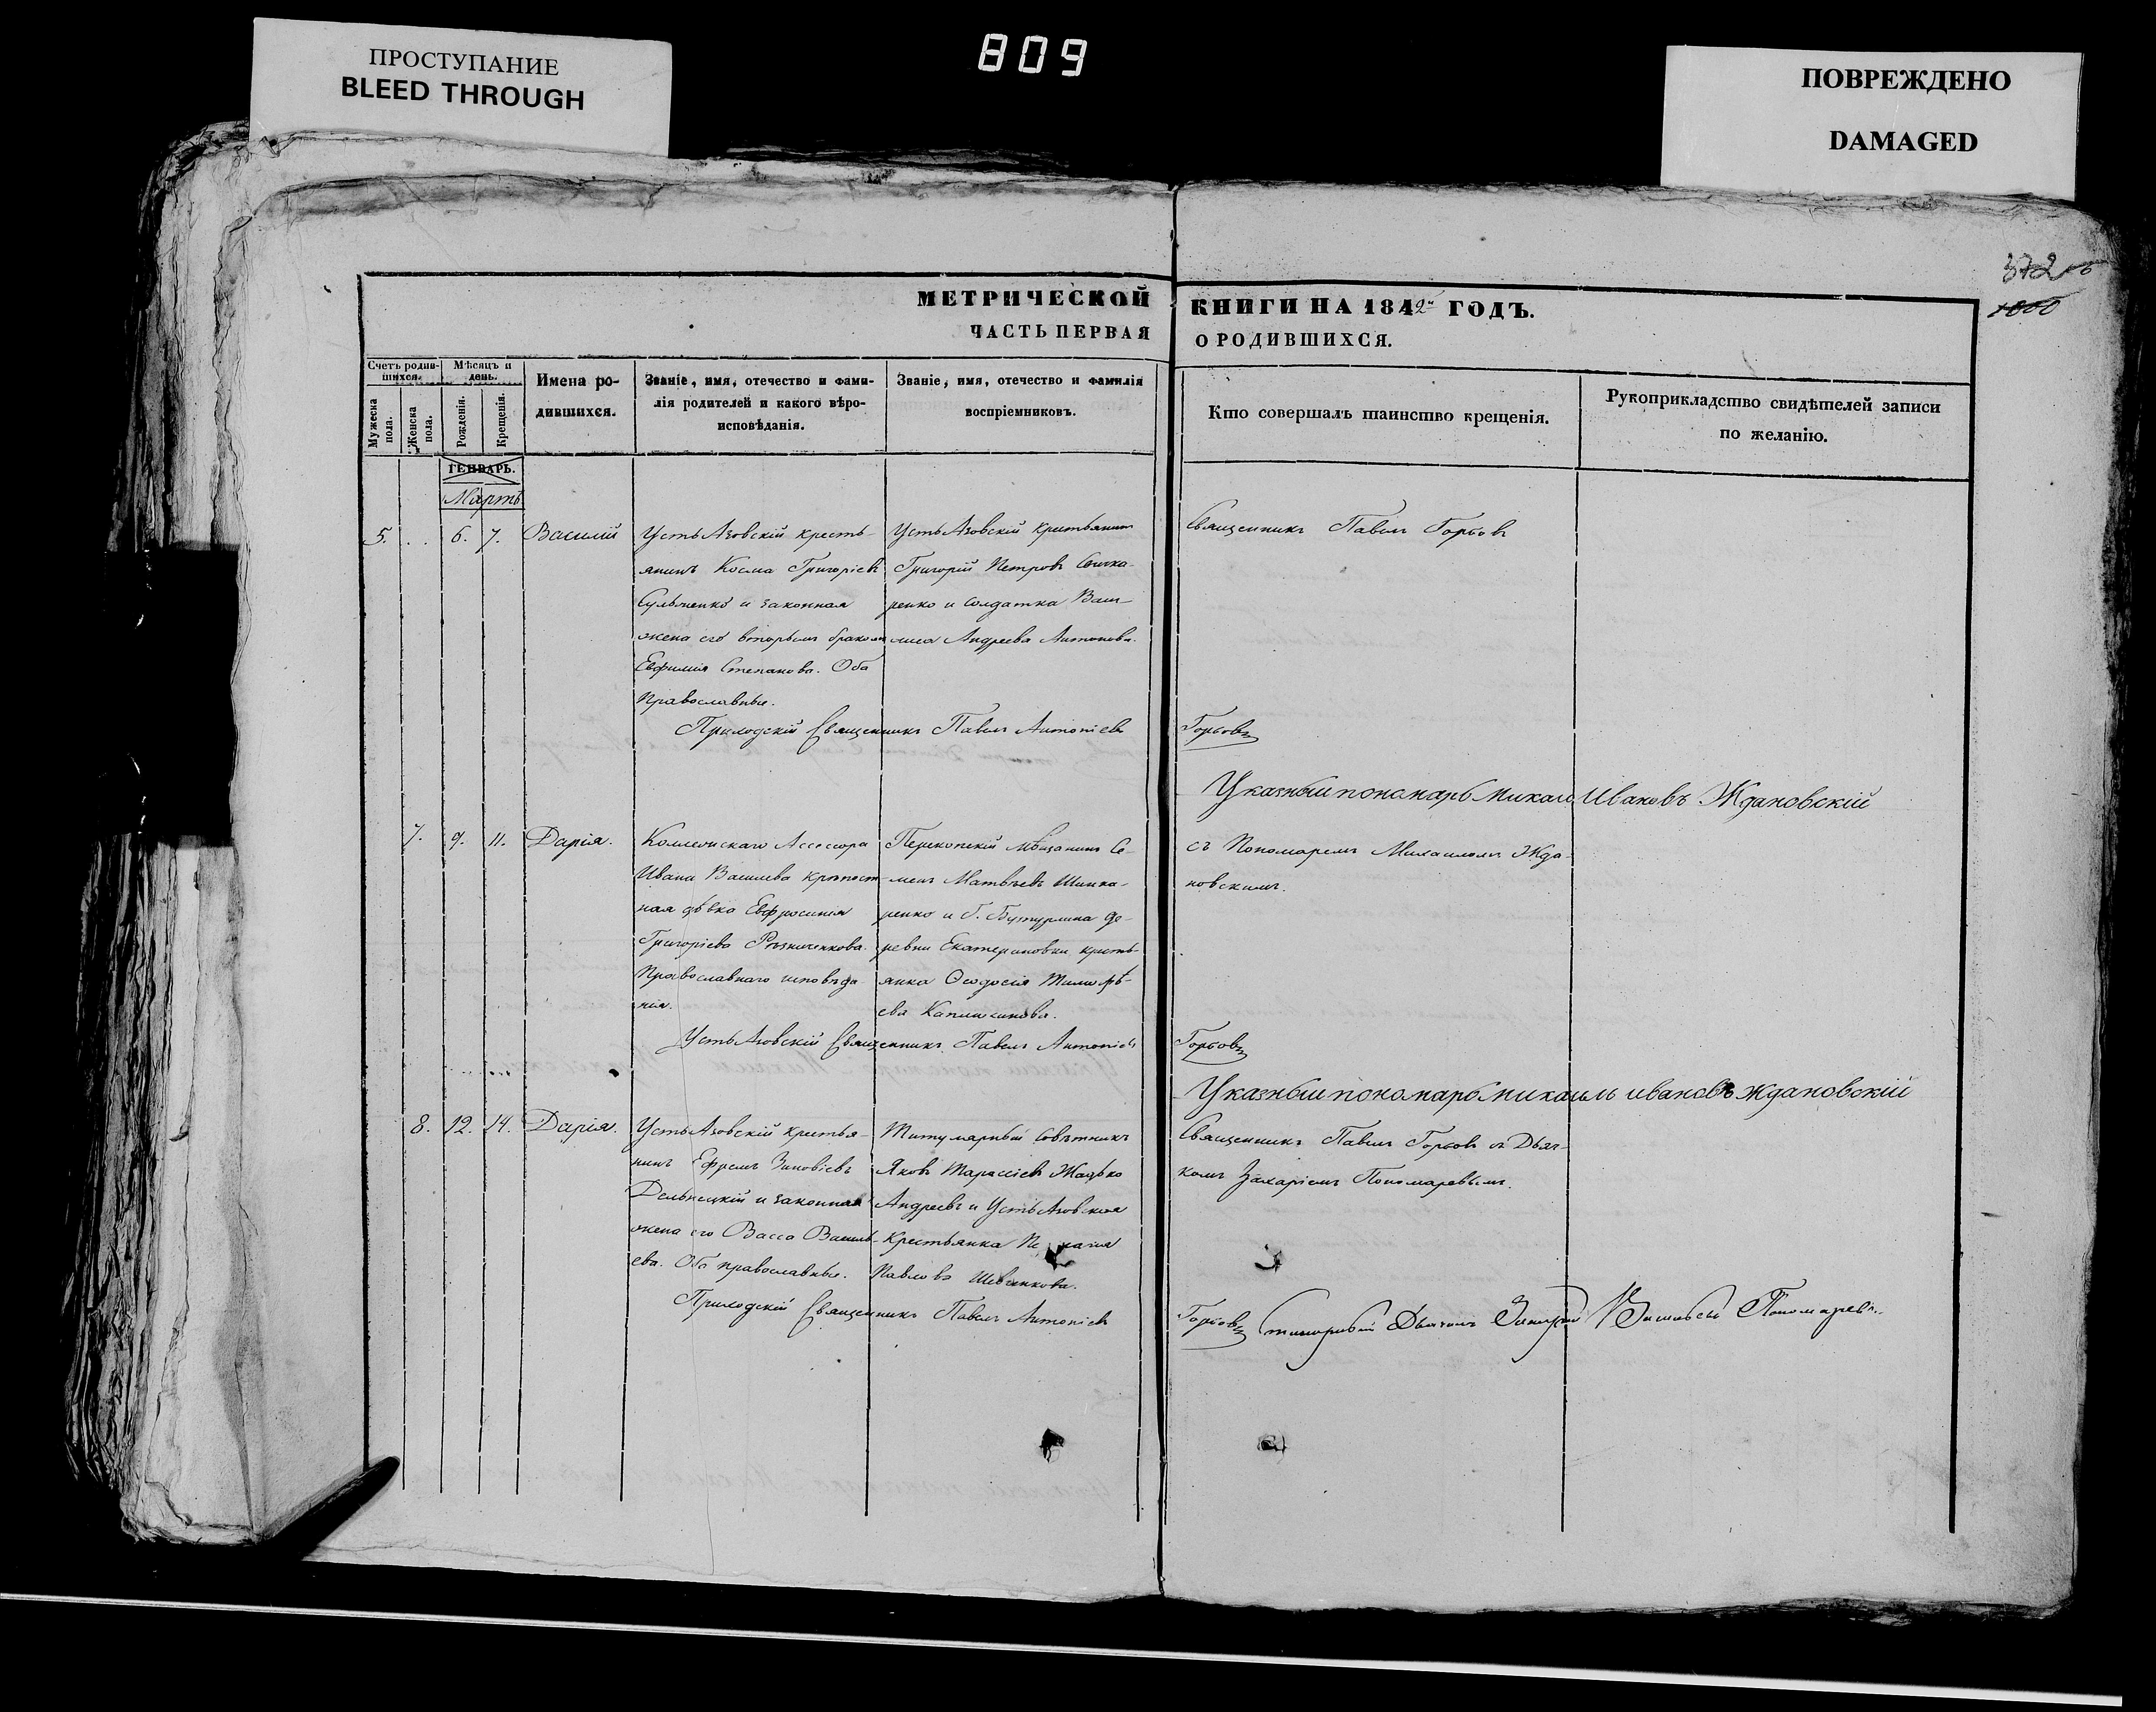 ПРОСТУПАНИЕ
BLEED THROUGH
809
ПОВРЕЖДЕНО
DAMAGED
372
1800
МЕТРИЧЕСКОЙ КНИГИ НА 1842й ГОДЪ.
ЧАСТЬ ПЕРВАЯ О РОДИВШИХСЯ.
Счетъ родив-
шихся.
Мужеска пола.
Женска пола.
Мѣсяцъ и
день.
Рожденія.
Крещенія.
Имена ро-
дившихся.
Званіе, имя, отечество и фами-
лія родителей и какого вѣро-
исповѣданія.
Званіе, имя, отечество и фамилія
воспріемниковъ.
Кто совершалъ таинство крещенія.
Рукоприкладство свидѣтелей записи
по желанію.
ГЕНВАРЬ.
Мартъ
5. . . 6. 7. Василій
Усть Азовскій кресть-
янинъ Косма Григоріевъ
и законная
жена его вторымъ бракомъ
Евфимія Степанова. Оба
Православные.
Усть Азовскій крестьянинъ
Григорій Петровъ
ренко и солдатка Васи-
лиса Андреева Антонова.
Священникъ Павелъ Горбовъ
Приходскій Священникъ Павелъ Антоніевъ Горбовъ
Указный пономарь Михаил Ивановъ Ждановскій
7. 9. 11. Дарія.
Коллежскаго Ассесора
Ивана Васильева крѣпост-
ная дѣвка Евфросинія
Григоріева Рѣзниченкова.
Православнаго исповѣда
нія.
Перекопскій мѣщанинъ Се-
менъ Матвѣевъ Шинка-
ренко и Г. Бутурлина де-
ревни Екатериновки кресть-
янка Ѳеодосія Тимоѳѣ-
ева
съ Пономаремъ Михаиломъ Жда-
новскимъ.
Усть Азовскій Священникъ Павелъ Антоніевъ Горбовъ
Указный пономарь михаилъ ивановъ Ждановскій
8. 12. 14. Дарія.
Усть Азовскій крестья-
нинъ Ефремъ Зиновіевъ
и законная
жена его Васса Василь-
ева. Оба православные.
Титулярный Совѣтникъ
Яковъ Тарасіевъ
Андреевъ и Усть Азовская
Крестьянка
Павлова Шевченкова.
Священникъ Павелъ Горбовъ съ Дьяч-
комъ Захаріемъ Пономаревымъ.
Приходскій Священникъ Павелъ Антоніевъ Горбовъ
Дьячокъ Захарій Васильевъ Пономаревъ.